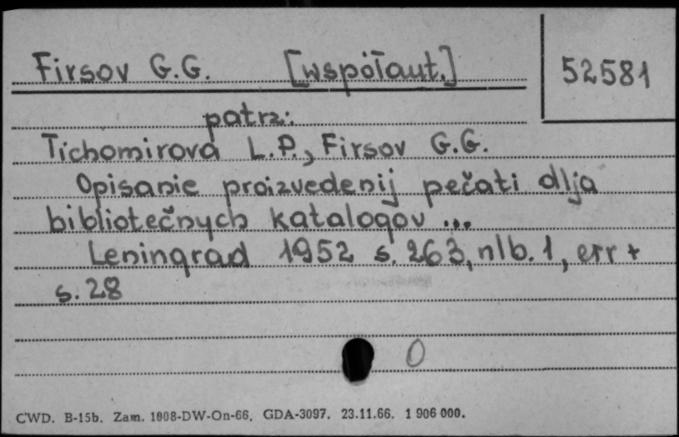 Firsov G.G. [współaut.]
52581
patrz:
Tichomirova L.P., Firsov G.G.
Opisanie proizvedenij pečati dlja
bibliotečnych katalogov ...
Leningrad 1952 s. 263, nlb. 1, err +
s. 28
0
CWD. B-15b. Zam. 1808-DW-On-66. GDA-3097. 23.11.66. 1 906 000.